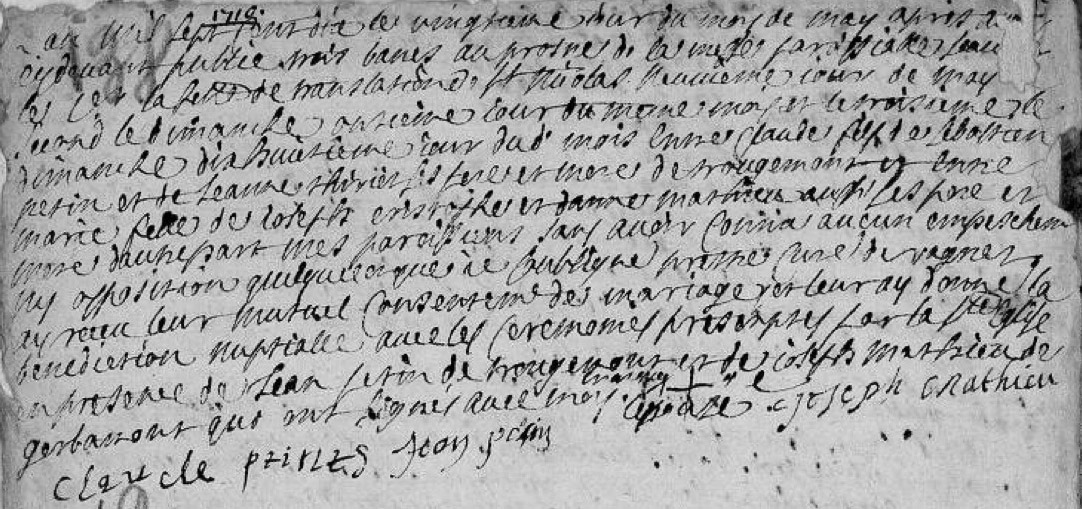 1710
an mil sept cent dix le vingtieme jour du moy de may apres a
cydevant publie trois bancs au prosne de la messe paroissialle
la feste de translation de st Nicolas neuvieme jour de may
second le dimanche onzieme jour du meme mois et le troisieme le
dimanche dix huitieme jour dud mois entre Claude fils de Sebastien
perin et de Jeanne ses pere et mere de rougemont et entre
marie fille de Joseph cristophe et danne mathieu aussi ses pere et
mere dautre part mes paroissiens sans avoir connu aucun empeschem
ny opposition quelquonque Je prestre curé de vagney
ay receu leur mutuel consentemt de mariage et leur ay donné la
benediction nuptialle avec les ceremonies prescriptes par la ste eglise
en presence de Jean perin de rougemont et de Joseph Mathieu de
gerbamont qui ont signes avec moy
Joseph Mathieu
Claude Jean perin